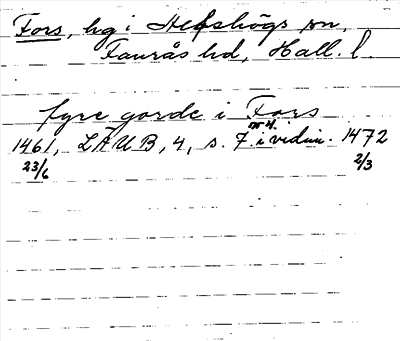 Fors, hg i Slefshögs sn,
Faurås hd, Hall. l.
fyre gorde i Fors
nr 4.
1461, LÄUB, 4, s. 7. i vidim. 1472
23/6 2/3